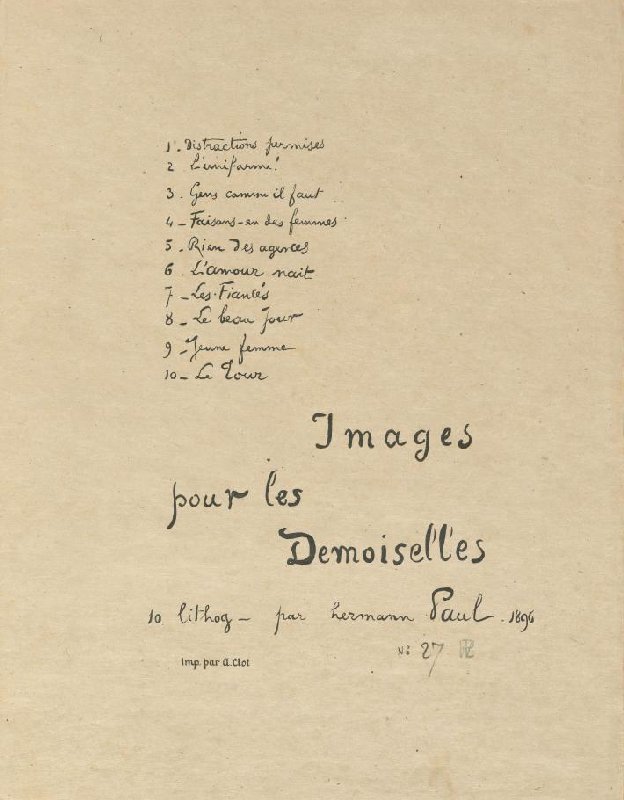 1 - Distractions permises
2 L'uniforme!
3 - Gens comme il faut
4 - Faisons-en des femmes
5 - Rien des agences
6 L'amour nait
7 - Les Fiancés
8 - Le beau Jour
9 - Jeune femme
10 - Le
Images
pour les
Demoiselles
10 lithog - par hermann Paul. 1896
No 27
Imp. par A. Clot